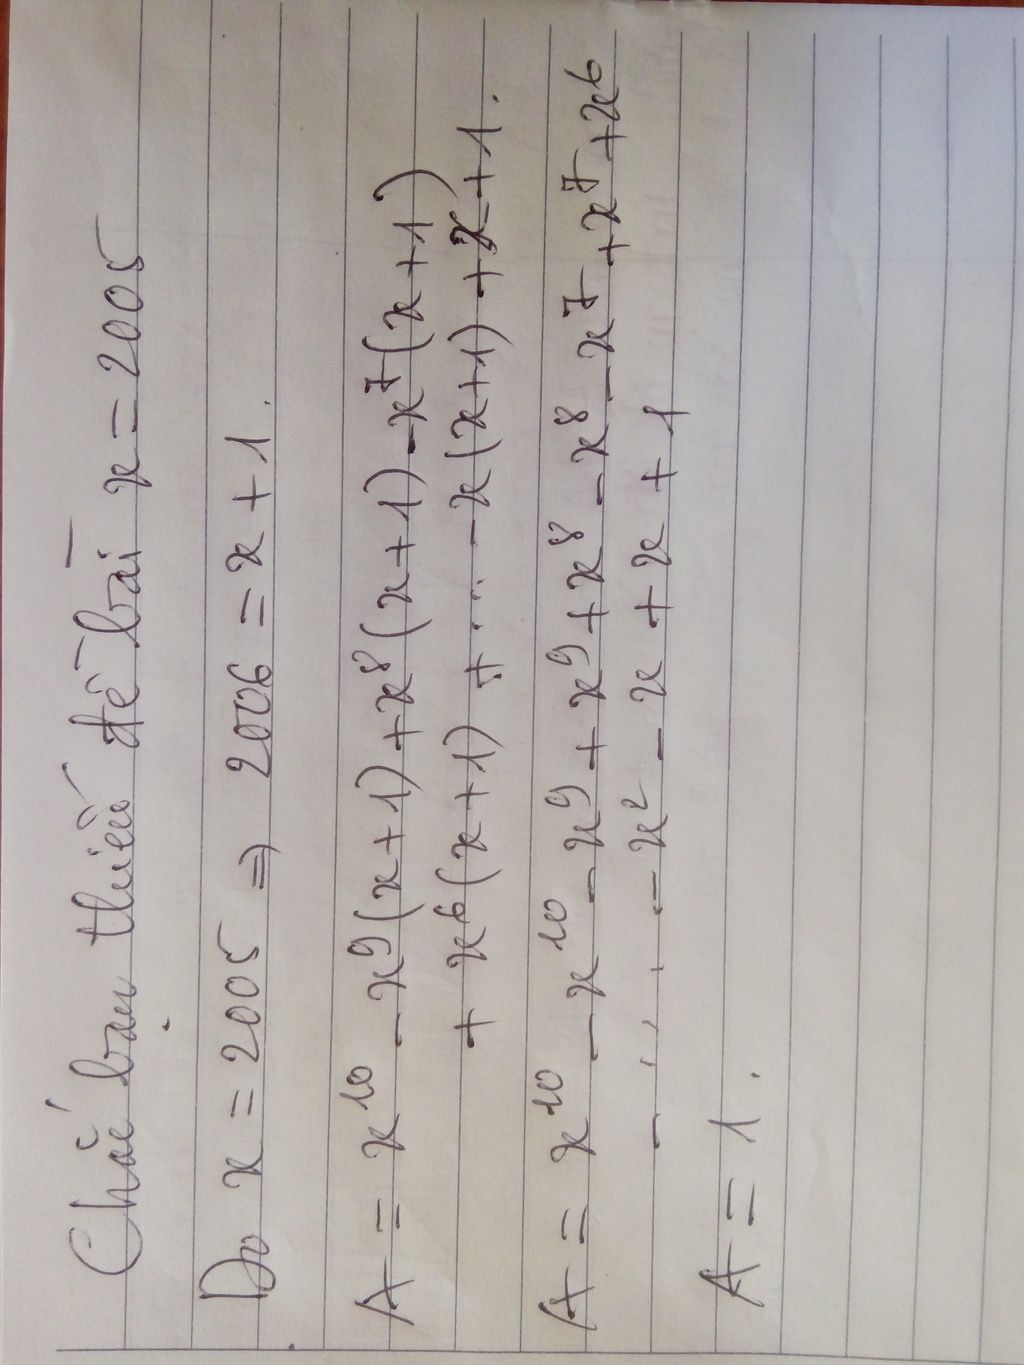 Chắc bạn thiếu đề bài x = 2005
Do x = 2005 ⇒ 2006 = x + 1.
A = x¹⁰ - x⁹(x+1) + x⁸(x+1) - x⁷(x+1)
+ x⁶(x+1) + ... - x(x+1) + x + 1.
A = x¹⁰ - x¹⁰ - x⁹ + x⁹ + x⁸ - x⁸ - x⁷ + x⁷ + x⁶
- .... - x² - x + x + 1
A = 1.